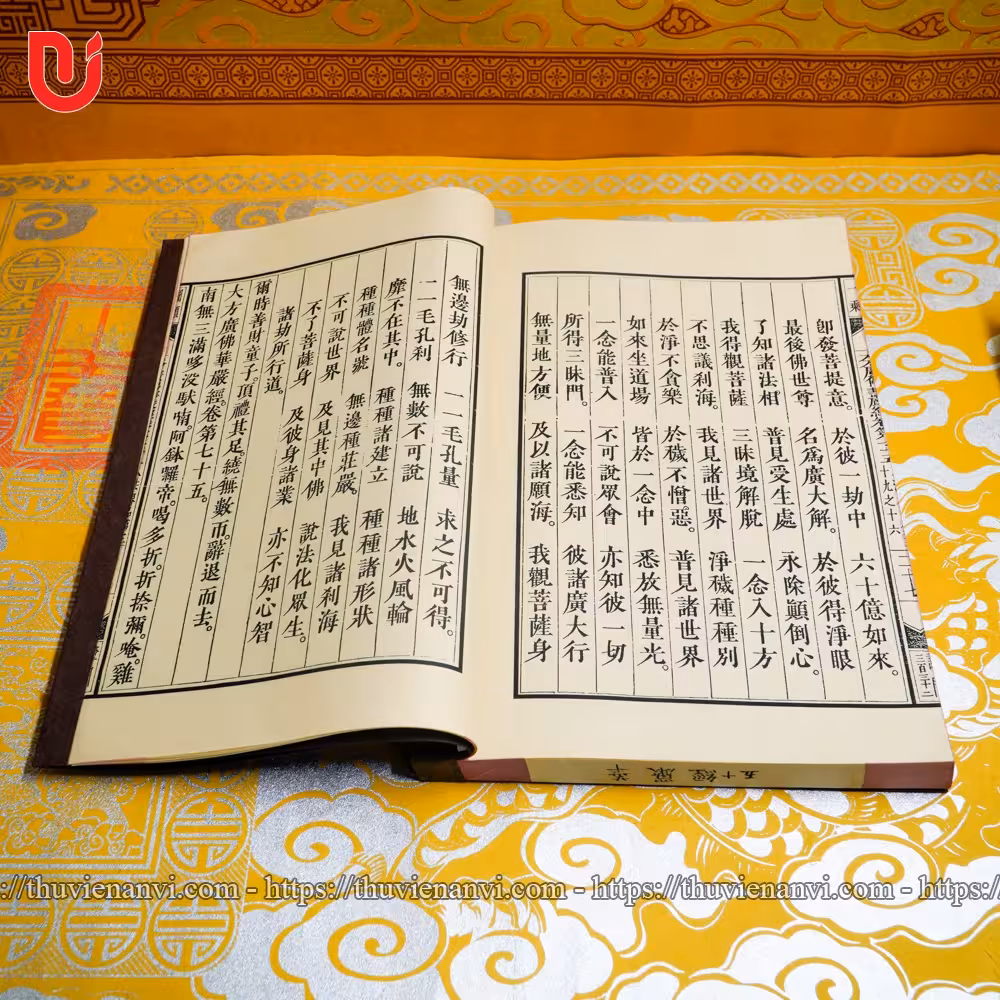 卽發菩提意。 於彼一劫中 六十億如來。
最後佛世尊 名爲廣大解。 於彼得淨眼
了知諸法相 普見受生處 永除顚倒心。
我得觀菩薩 三昧境解脫 一念入十方
不思議刹海。 我見諸世界 淨穢種種別
於淨不貪樂 於穢不憎惡。 普見諸世界
如來坐道場 皆於一念中 悉放無量光。
一念能普入 不可說眾會 亦知彼一切
所得三昧門。 一念能悉知 彼諸廣大行
無量地方便 及以諸願海。 我觀菩薩身
無邊劫修行 一一毛孔量 求之不可得。
一一毛孔刹 無數不可說 地水火風輪
靡不在其中。 種種諸建立 種種諸形狀
種種體名號 無邊種莊嚴。 我見諸刹海
不可說世界 及見其中佛 說法化眾生。
不了菩薩身 及彼身諸業 亦不知心智
諸劫所行道。
爾時善財童子。頂禮其足。繞無數帀。辭退而去。
大方廣佛華嚴經。卷第七十五。
南無三滿哆沒馱喃。阿鉢囉帝。喝多折。折捺彌。唵。雞
三百三十二
華嚴經十五
https://thuvienanvi.com - https://thuvienanvi.com - https://thuvienanvi.com - https://